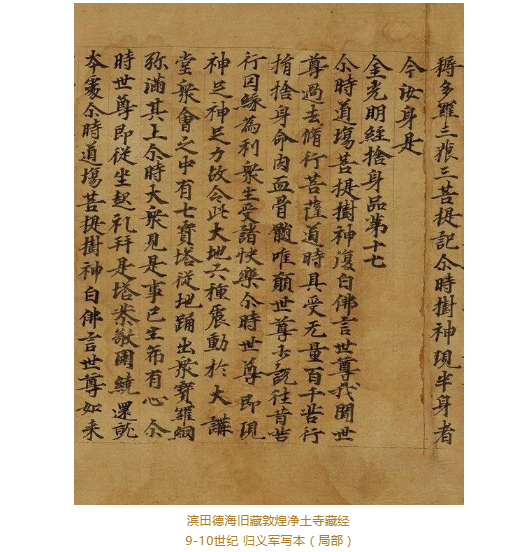 耨多羅三藐三菩提記尒時樹神現半身者
今汝身是
金光明經捨身品第十七
尒時道塲菩提樹神復白佛言世尊我聞世
尊過去脩行菩薩道時具受无量百千苦行
捐捨身命肉血骨髓唯願世尊少說往昔苦
行因緣為利衆生受諸快樂尒時世尊即現
神足神足力故令此大地六種震動於大講
堂衆會之中有七寶塔從地踊出衆寶羅網
弥滿其上尒時大衆見是事已生希有心尒
時世尊即從坐起礼拜是塔恭敬圍繞還就
本處尒時道塲菩提樹神白佛言世尊如来
滨田德海旧藏敦煌净土寺藏经
9-10世纪 归义军写本（局部）